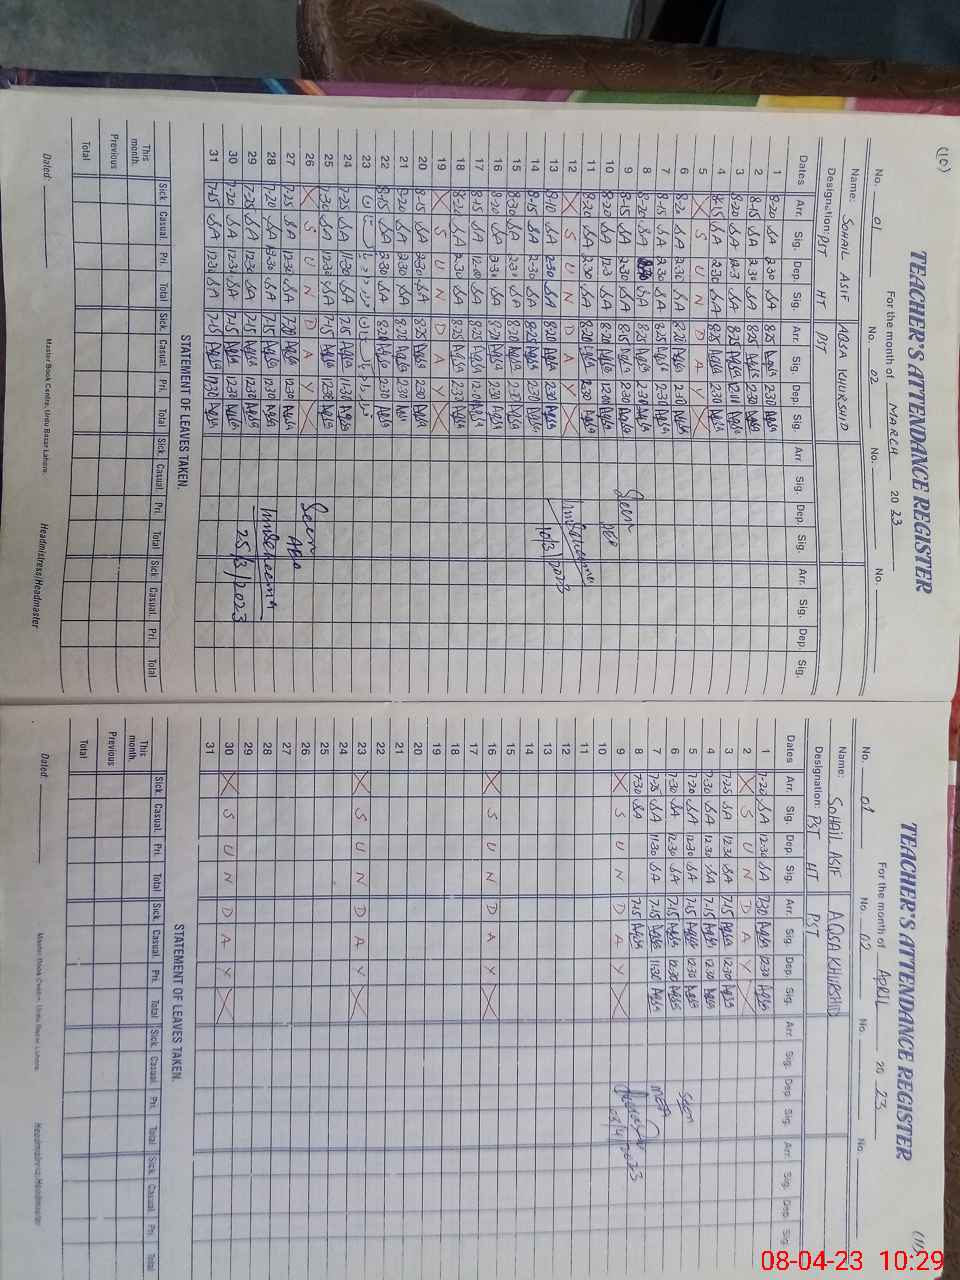 (10)
TEACHER'S ATTENDANCE REGISTER
For the month of MARCH 2023
No. 01 No. 02 No. No.
Name: SOHAIL ASIF AQSA KHURSHID
Designation: PST HT PST
Dates Arr. Sig. Dep. Sig. Arr. Sig. Dep. Sig. Arr. Sig. Dep. Sig. Arr. Sig. Dep. Sig.
1 8-20 SA 2.30 SA 8.25 Aqsa 2.30 Aqsa
2 8-15 SA 2.30 SA 8.25 Aqsa 2.30 Aqsa
3 8-20 SA 12.3 SA 8.25 Aqsa Aqsa
4 8-15 SA 2.30 SA 8.25 Aqsa 2.30 Aqsa
5 X S U N D A Y X
6 8.20 SA 2.30 SA 8.20 Aqsa 2.30 Aqsa
7 8-15 SA 2.30 SA 8.25 Aqsa 2.30 Aqsa
8 8-20 SA SA 8.20 Aqsa 2.30 Aqsa
9 8-15 SA 2.30 SA 8.15 Aqsa 2.30 Aqsa
10 8.20 SA 12.3 SA 8.20 Aqsa 12.00 Aqsa
11 8-20 SA 2.30 SA 8.20 Aqsa 2.30 Aqsa
12 X S U N D A Y X
13 8-10 SA 2.30 SA 8.20 Aqsa 2.30 Aqsa
14 8-15 SA 2.30 SA 8.25 Aqsa 2.30 Aqsa
15 8.30 SA 2.30 SA 8.20 Aqsa Aqsa
16 8.20 SA 2.30 SA 8.20 Aqsa 2.30 Aqsa
17 8-15 SA 12.00 SA 8.25 Aqsa 12.00 Aqsa
18 8-20 SA 2.30 SA 8.25 Aqsa 2.30 Aqsa
19 X S U N D A Y X
20 8-15 SA 2.30 SA 8.25 Aqsa 2.30 Aqsa
21 8-20 SA 2.30 SA 8.20 Aqsa 2.30 Aqsa
22 8-15 SA 2.30 SA 8.20 Aqsa 2.30 Aqsa
23
24 7-25 SA 11.30 SA 7.15 Aqsa 11.30 Aqsa
25 7.30 SA 12.30 SA 7-15 Aqsa 12.30 Aqsa
26 X S U N D A Y X
27 7-25 SA 12.30 SA 7.20 Aqsa 12.30 Aqsa
28 7-20 SA 12.30 SA 7.15 Aqsa 12.30 Aqsa
29 7-25 SA 12.30 SA 7.15 Aqsa 12.30 Aqsa
30 7-20 SA 12.30 SA 7.15 Aqsa 12.30 Aqsa
31 7-15 SA 12.30 SA 7.15 Aqsa 11.30 Aqsa
Seen
AEO
10/3/2023
Seen
AEO
25/3/2023
STATEMENT OF LEAVES TAKEN.
Sick Casual. Pri. Total Sick. Casual. Pri. Total Sick. Casual. Pri. Total Sick Casual. Pri. Total
This month.
Previous
Total
Dated:
Master Book Centre, Urdu Bazar Lahore.
Headmistress/Headmaster
(11)
TEACHER'S ATTENDANCE REGISTER
For the month of APRIL 2023
No. 01 No. 02 No. No.
Name: SOHAIL ASIF AQSA KHURSHID
Designation: PST HT PST
Dates Arr. Sig. Dep. Sig. Arr. Sig. Dep. Sig. Arr. Sig. Dep. Sig. Arr. Sig. Dep. Sig.
1 7-20 SA 12.30 SA 7.30 Aqsa 12.30 Aqsa
2 X S U N D A Y X
3 7.25 SA 12.30 SA 7.15 Aqsa 12.30 Aqsa
4 7-30 SA 12.30 SA 7-15 Aqsa 12.30 Aqsa
5 7-20 SA 12.30 SA 7.15 Aqsa 12.30 Aqsa
6 7-30 SA 12.30 SA 7.15 Aqsa 12.30 Aqsa
7 7-25 SA 11.30 SA 7.15 Aqsa 11.30 Aqsa
8 7.30 SA 7.15 Aqsa
9 X S U N D A Y X
10
11
12
13
14
15
16 X S U N D A Y X
17
18
19
20
21
22
23 X S U N D A Y X
24
25
26
27
28
29
30 X S U N D A Y X
31
Seen
MEA
STATEMENT OF LEAVES TAKEN.
Sick. Casual. Pri. Total Sick. Casual. Pri. Total Sick. Casual. Pri. Total Sick. Casual. Pri. Total
This month.
Previous
Total
Dated:
Master Book Centre, Urdu Bazar Lahore.
Headmistress/Headmaster
08-04-23 10:29